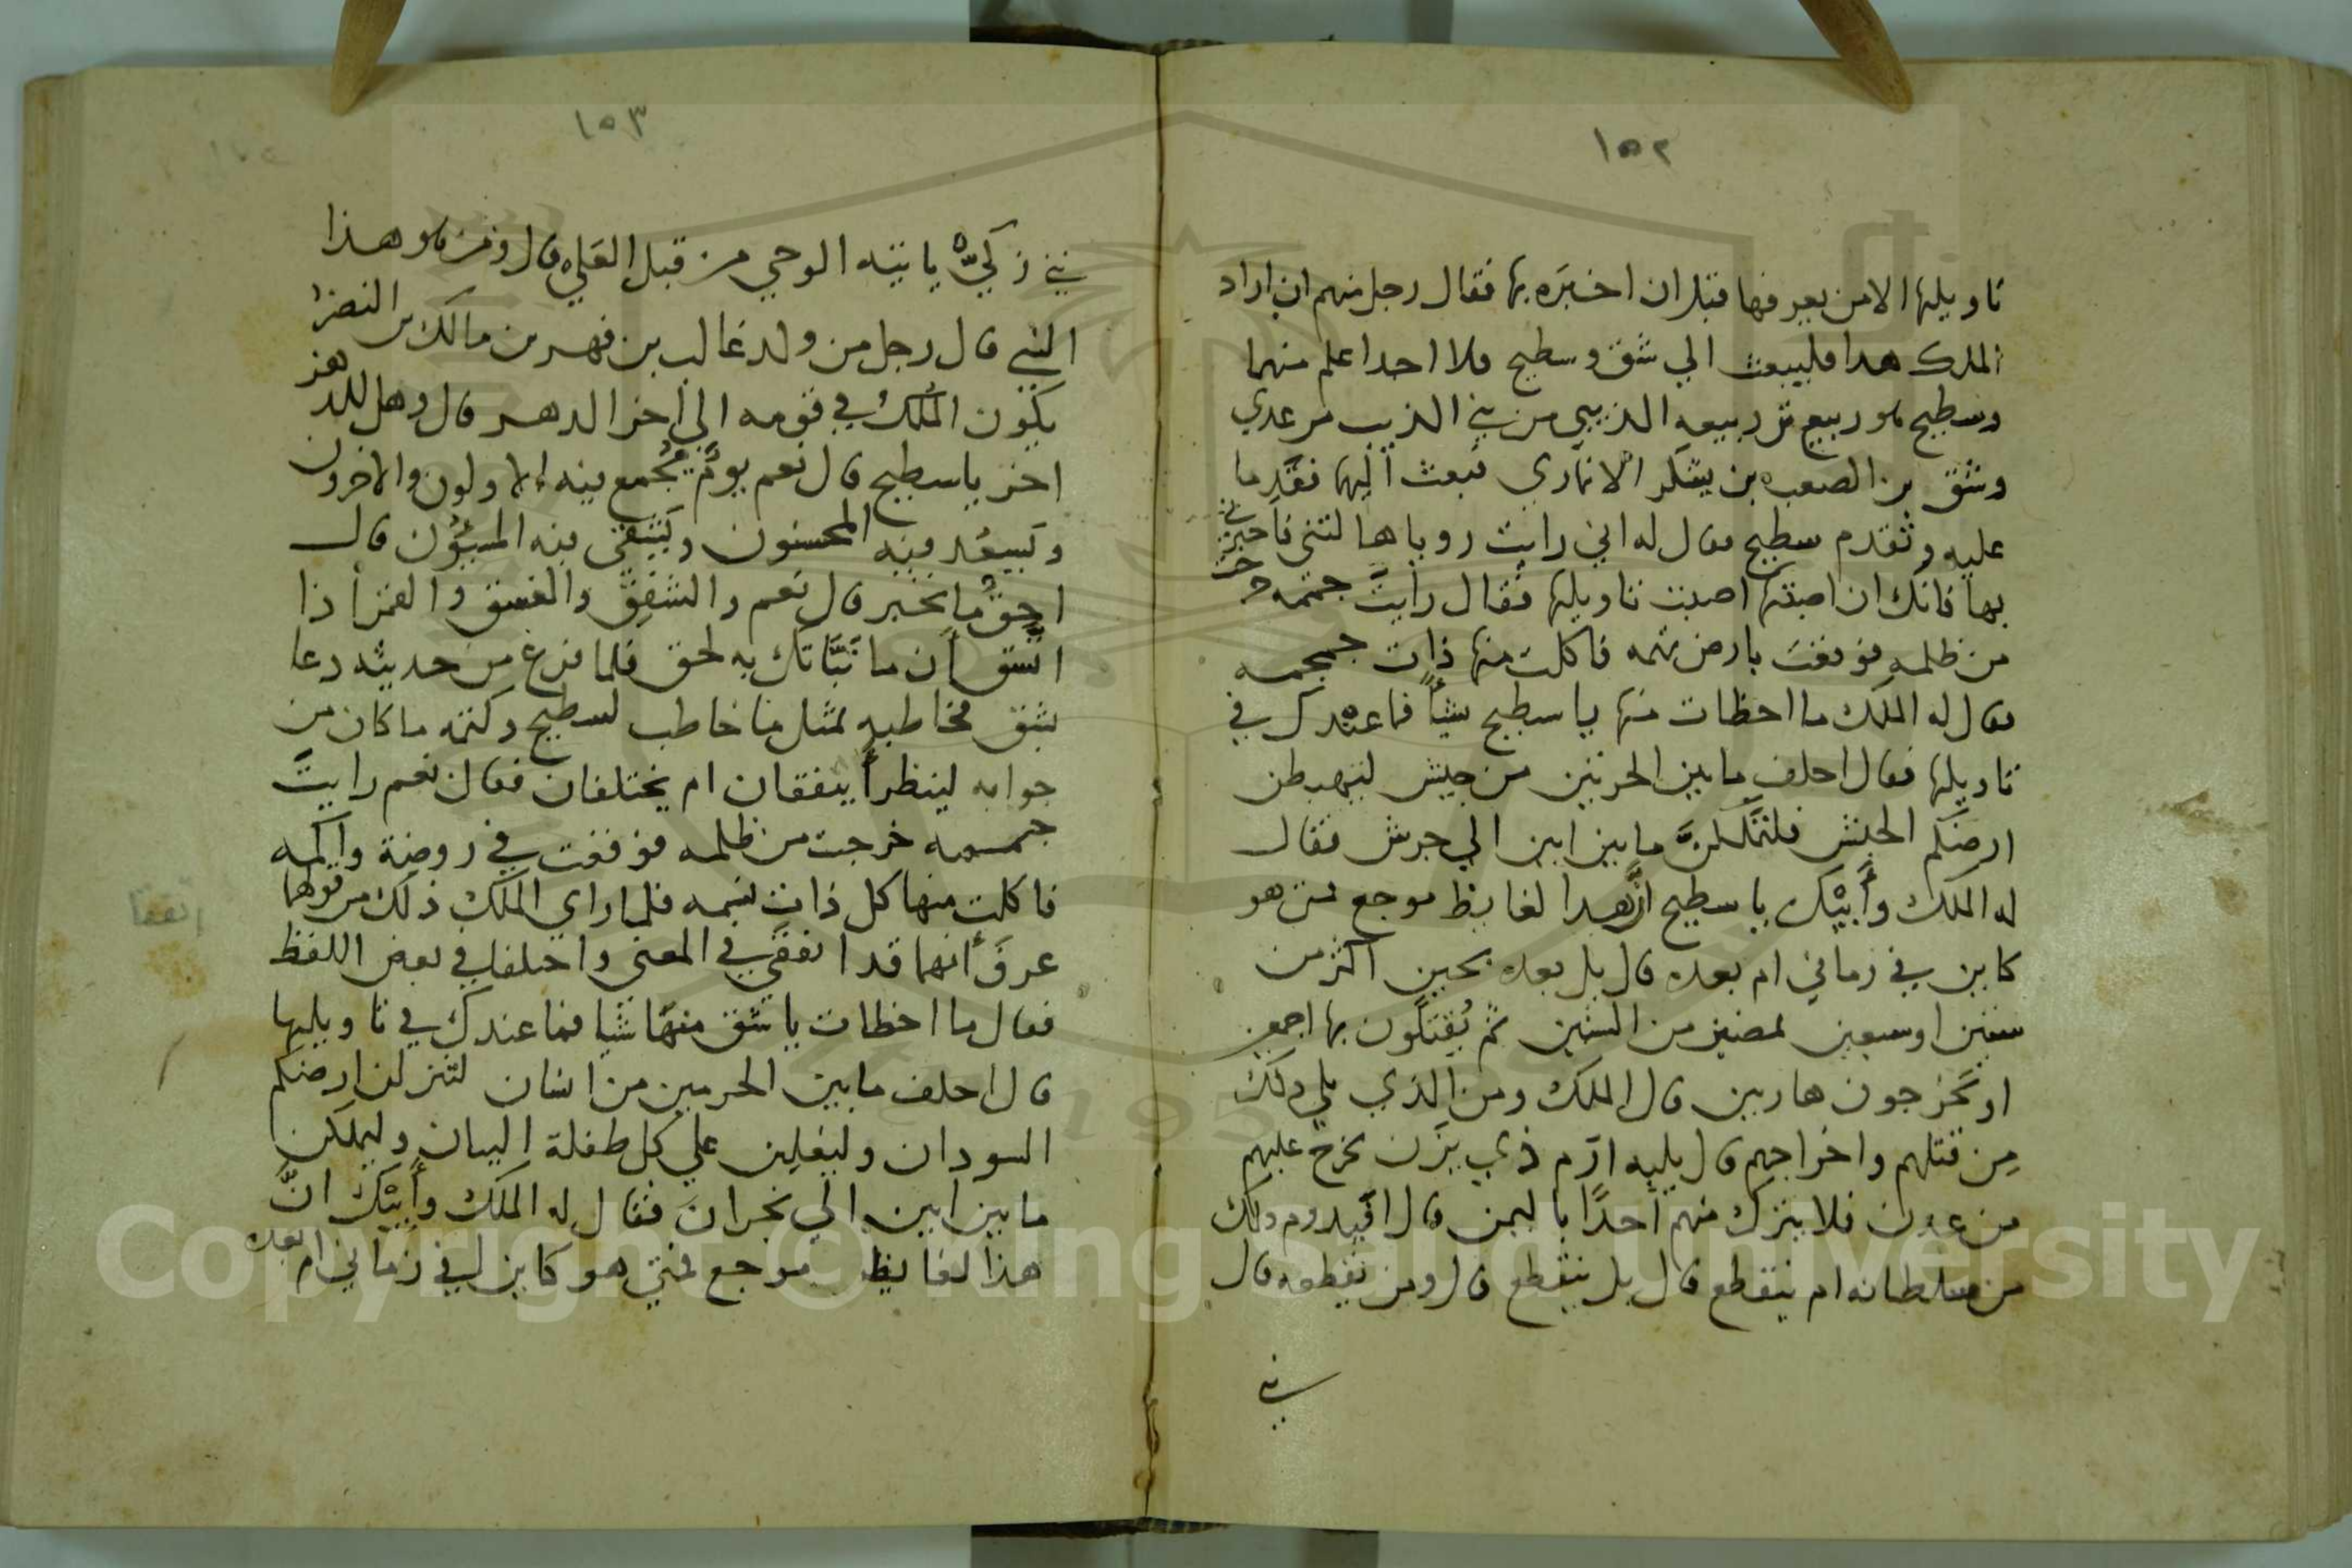 ١٥٢
تاويلها الا من يعرفها قبل ان اخبَره بها فقال رجل منهم ان اراد
الملك هدا فليبعث الي شق وسطيح فلا احدا علم منهما
وسطيح هو ربيع بن ربيعه الذيبي من بني الذيب بن عدي
وشق بن الصعب بن يشكر الانماري فبعث اليهما فقدما
عليه وتقدم سطيح فقال له اني رايت روياها لتني فاخبرني
بها فانك ان اصبتها اصبت تاويلها فقال رايتَ جمجمه خرجت
من ظلمه فوقعت بارض تهمه فاكلت منها ذات جمجمه
فقال له الملك ما اخطات منها يا سطيح شياً فما عندك في
تاويلها فقال احلف ما بين الحرتين من حنش ليهبطن
ارضكم الحبش فلتملكنَّ ما بين ابين الي جرش فقال
له الملك وأبيْك يا سطيح انَّ هدا لغايظ موجع فمتى هو
كاين في زماني ام بعده قال بل بعده بحين اكثر من
ستين او سبعين لمضين من السنين ثم يُقتَلون بها اجمعين
او يَخرجون هاربين قال الملك ومن الذي يلي ذلك
مِن قتلهم واخراجهم قال يليه ارَم ذي يزَن يخرج عليهم
من عدن فلا يترك منهم احدًا باليمن قال افيدوم ذلك
من سلطانه ام ينقطع قال بل ينقطع قال ومن يقطعه قال
نبي
١٥٣
نبي زكيّ ياتيه الوحي من قبل العلي قال وممن هو هذا
النبي قال رجل من ولد غالب بن فهر بن مالك بن النضر
يكون المُلك في قومه الي اخر الدهر قال وهل للدهر
اخر يا سطيح قال نعم يومٌ يُجمع فيه الاولون والاخرون
ويَسعُد فيه المحسنون ويَشقى فيه المسيؤن قال
احقٌ ما تخبر قال نعم والشفق والغسق والقمر اذا
اتسق ان ما نبَّاتك به لحق فلما فرغ من حديثه دعا
بشق فخاطبه بمثل ما خاطب لسطيح وكتمه ما كان من
جوابه لينظر أيتفقان ام يختلفان فقال نعم رايتَ
جمجمه خرجت من ظلمه فوقعت في روضة واكمه
فاكلت منها كل ذات نسمه فلما راي الملك ذلك من قولهما
عرفَ أنهما قد اتفقى في المعنى واختلفا في بعض اللفظ
اتفقا
فقال ما اخطات يا شق منها شيا فما عندك في تاويليها
قال احلف ما بين الحرمين من انسان لتنزلن ارضكم
السودان وليغلبن علي كل طفلة البنان وليملكن
ما بين ابين الي نجران فقال له الملك وأبيْك انَّ
هذا لغايظ موجع فمتي هو كاين ليفي زماني ام بعده